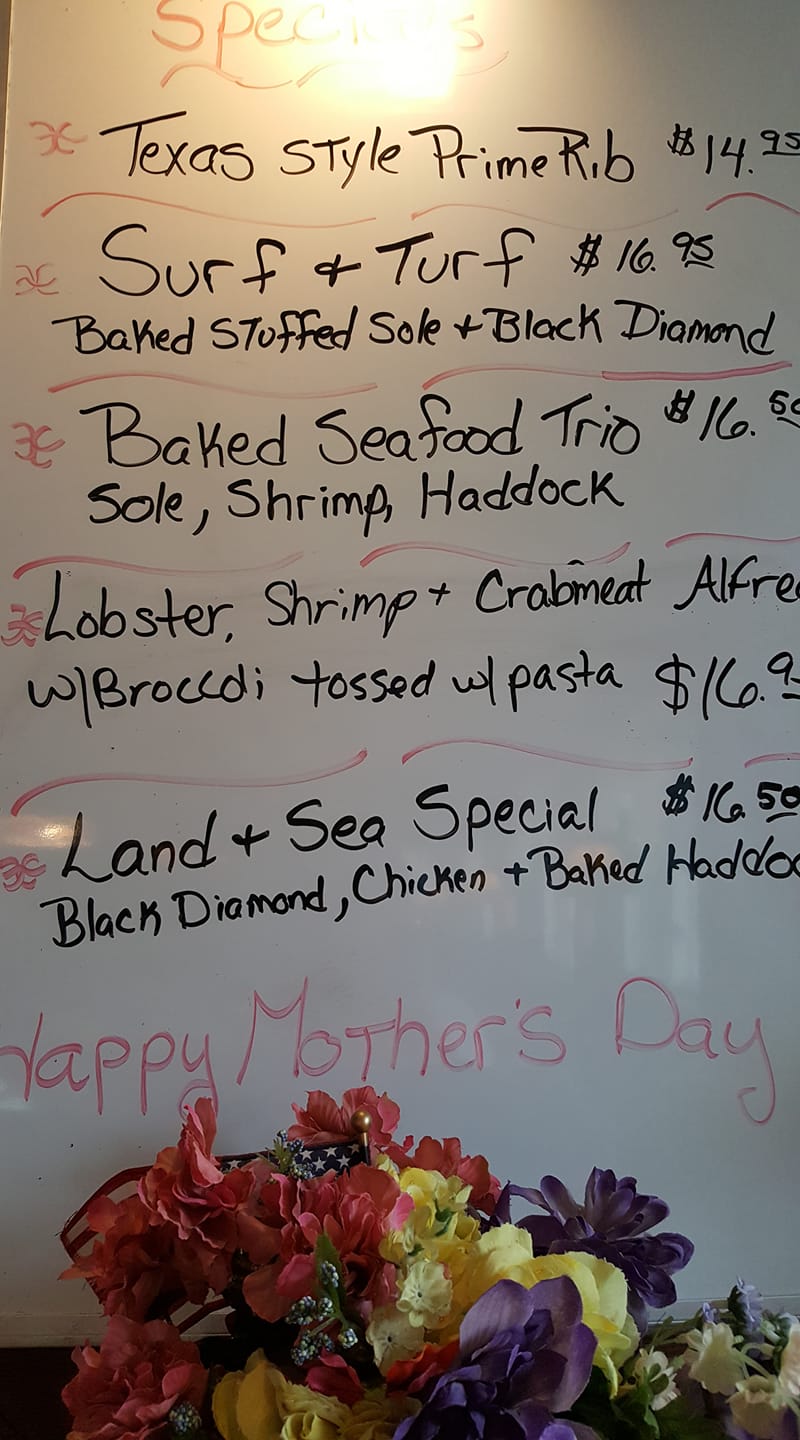 Specials
Texas Style Prime Rib $14.95
Surf + Turf $16.95
Baked Stuffed Sole + Black Diamond
Baked Seafood Trio $16.50
Sole, Shrimp, Haddock
Lobster, Shrimp + Crabmeat Alfre
w/Broccoli tossed w/ pasta $16.9
Land + Sea Special $16.50
Black Diamond, Chicken + Baked Haddo
Happy Mother's Day